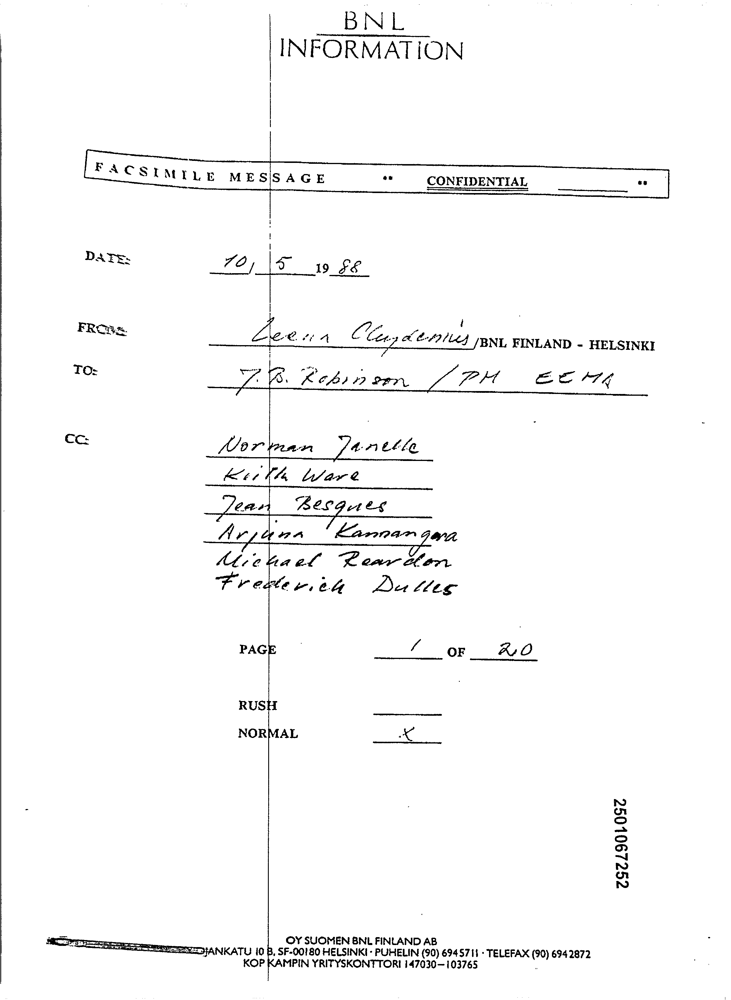 BNL
INFORMATION
FACSIMILE MESSAGE " CONFIDENTIAL "
DATE: 10, 5 1988
FROM: Leena Clydenius/BNL FINLAND - HELSINKI
TO: J.B. Robinson / PM EEMA
CC: Norman Janelle
Keith Ware
Jean Besques
Arjuna Kannangara
Michael Reardon
Frederich Dulles
PAGE 1 OF 20
RUSH
NORMAL X
2501067252
OY SUOMEN BNL FINLAND AB
JANKATU 10 B, SF-00180 HELSINKI · PUHELIN (90) 6945711 · TELEFAX (90) 6942872
KOP KAMPIN YRITYSKONTTORI 147030–103765